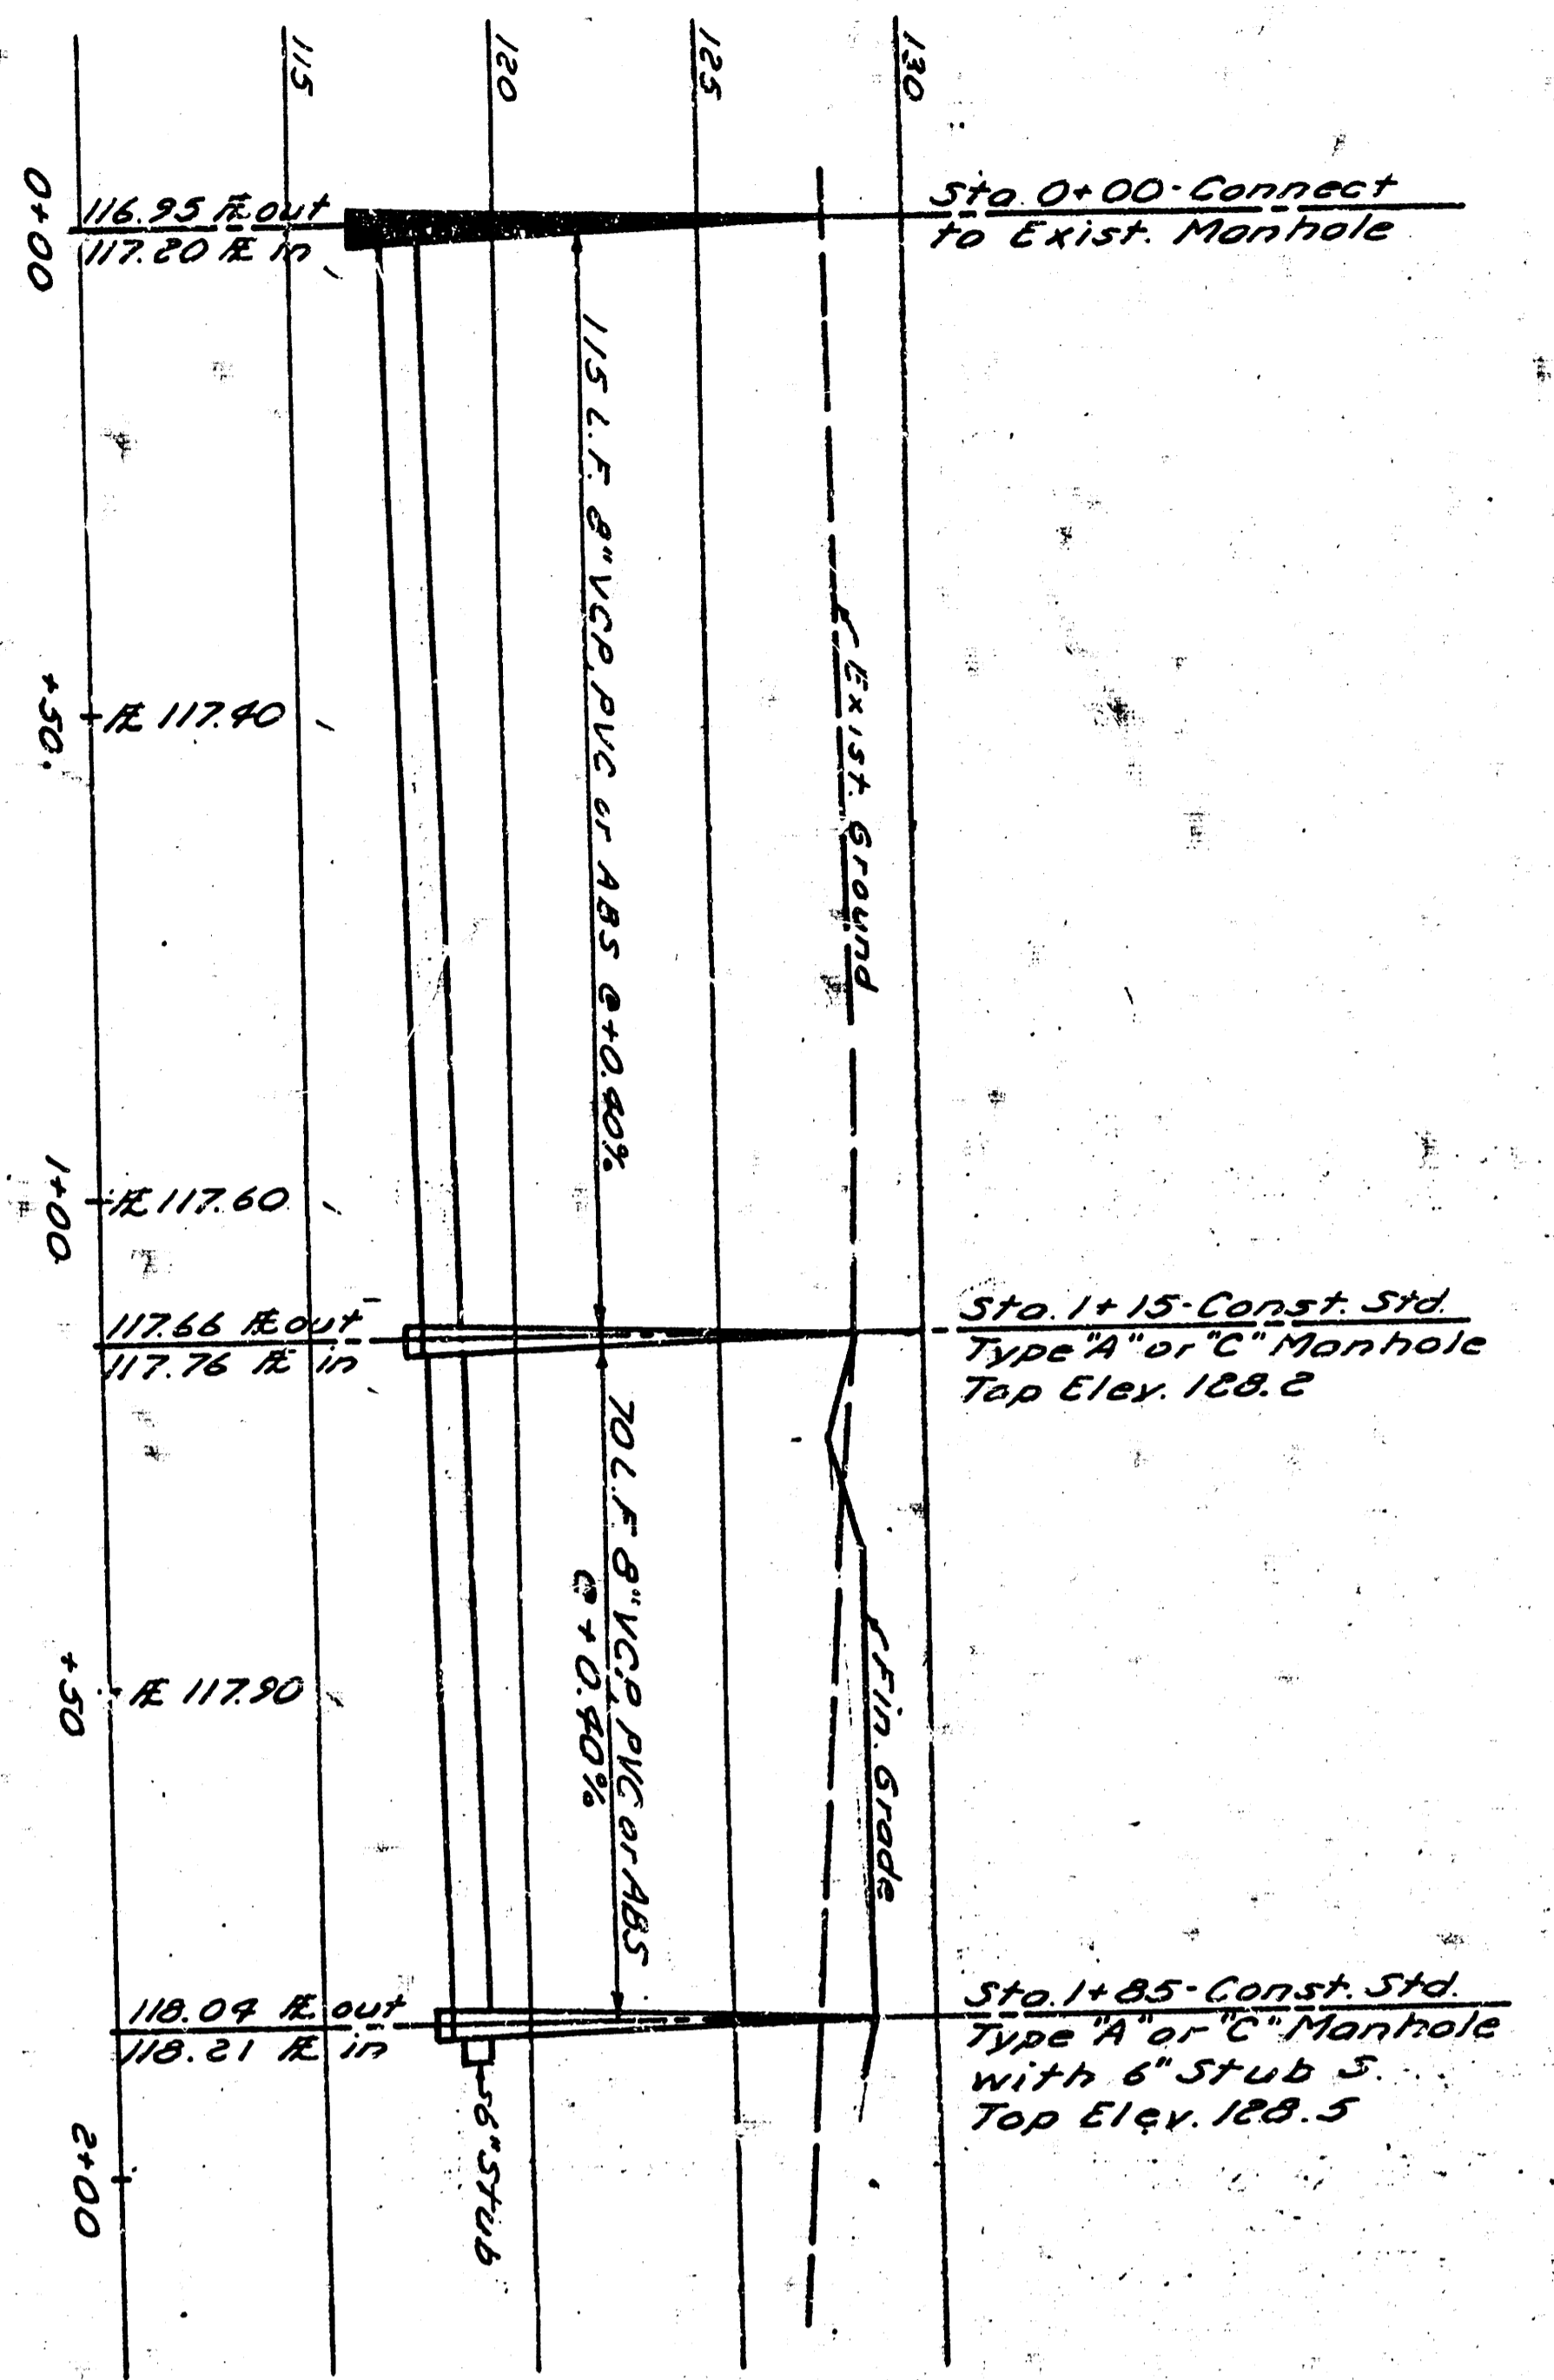 115
120
125
130
Sta. 0+00-Connect
to Exist. Manhole
116.95 FL out
117.20 FL in
0+00
115 L.F. 8" VCP, PVC or ABS @+0.40%
Exist. Ground
+50
FL 117.40
1+00
FL 117.60
117.66 FL out
117.76 FL in
Sta. 1+15-Const. Std.
Type "A" or "C" Manhole
Top Elev. 128.2
70 L.F. 8" VCP, PVC or ABS
@ +0.40%
Fin. Grade
+50
FL 117.90
118.04 FL out
118.21 FL in
Sta. 1+85-Const. Std.
Type "A" or "C" Manhole
with 6" Stub S.
Top Elev. 128.5
6" Stub
2+00